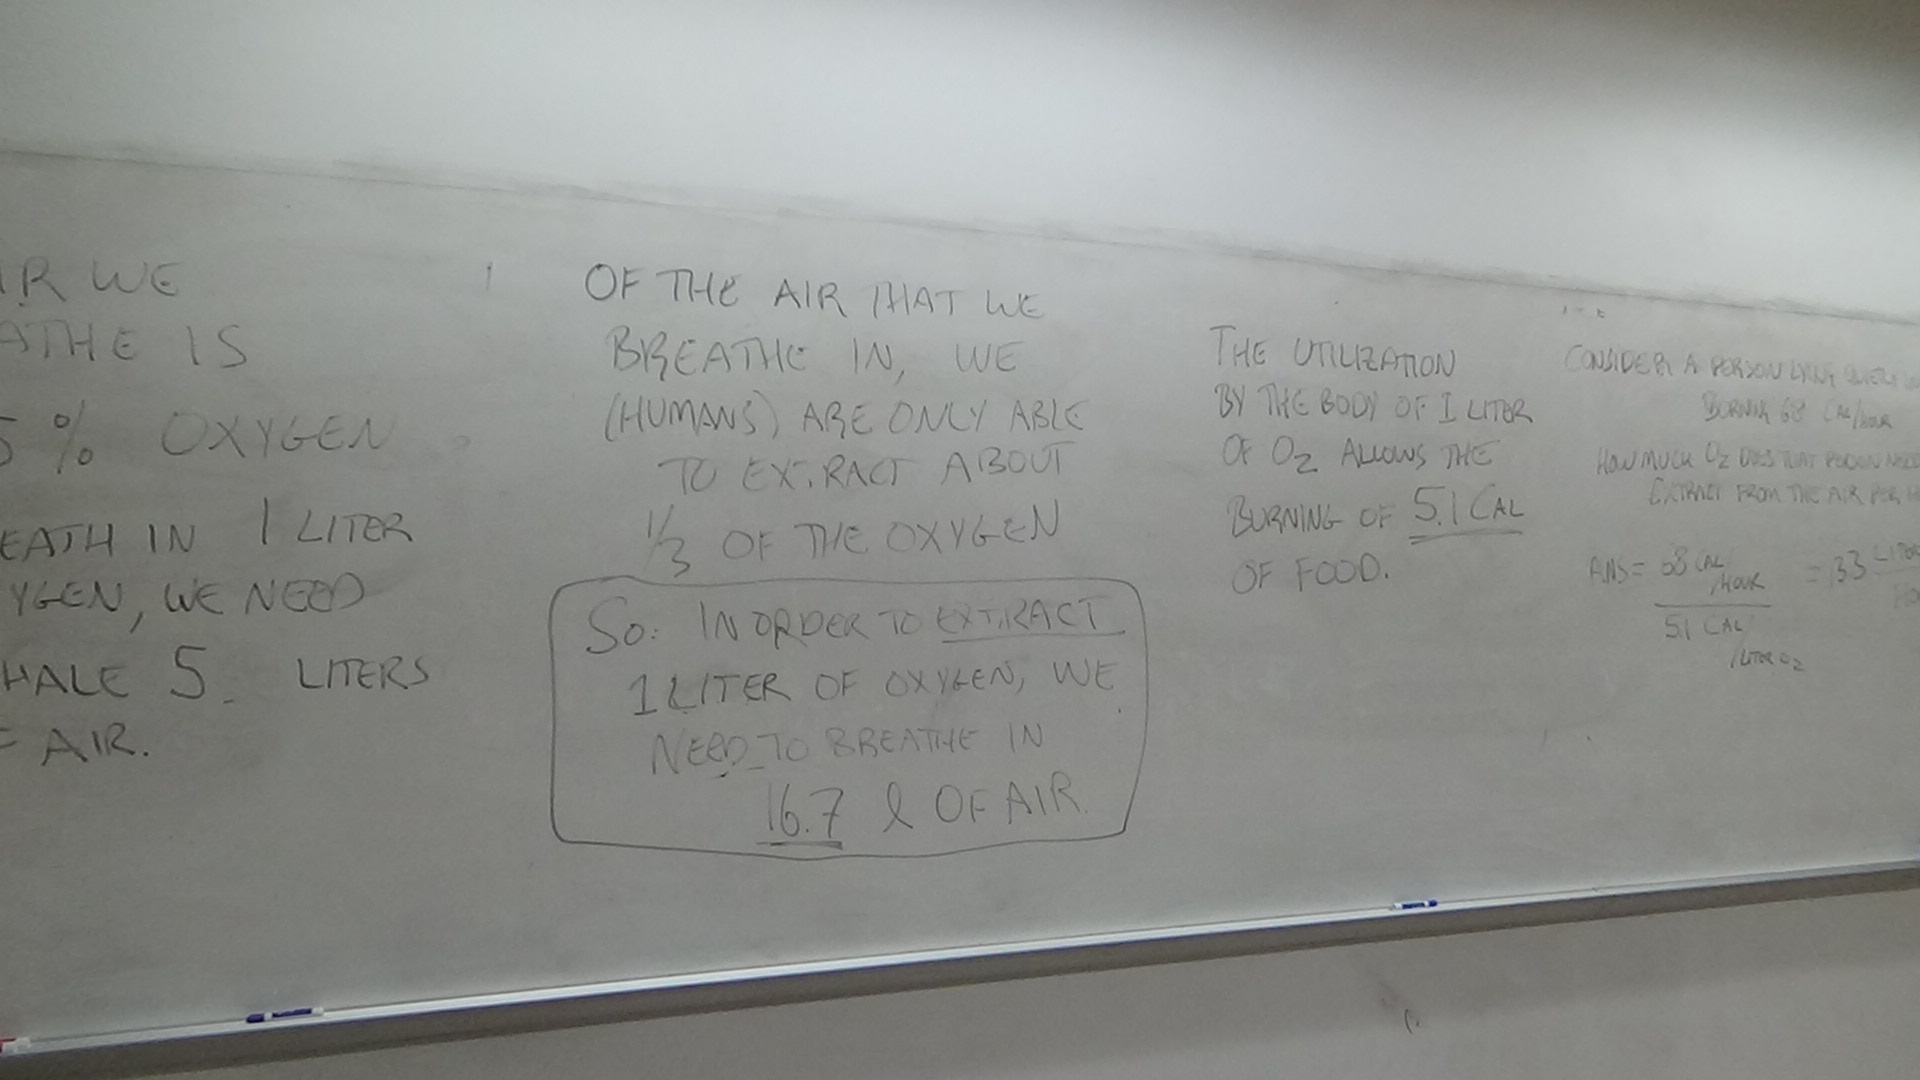 IR WE
ATHE IS
5 % OXYGEN
EATH IN 1 LITER
YGEN, WE NEED
HALE 5 LITERS
F AIR.
OF THE AIR THAT WE
BREATHE IN, WE
(HUMANS) ARE ONLY ABLE
TO EXTRACT ABOUT
1/3 OF THE OXYGEN
SO: IN ORDER TO EXTRACT
1 LITER OF OXYGEN, WE
NEED TO BREATHE IN
16.7 l OF AIR.
THE UTILIZATION
BY THE BODY OF 1 LITER
OF O2 ALLOWS THE
BURNING OF 5.1 CAL
OF FOOD.
CONSIDER A PERSON LYING QUIETLY
BURNING 68 CAL/HOUR
HOW MUCH O2 DOES THAT PERSON NEED
EXTRACT FROM THE AIR PER
ANS = 68 CAL/HOUR = 13.3 LITER
5.1 CAL/LITER O2